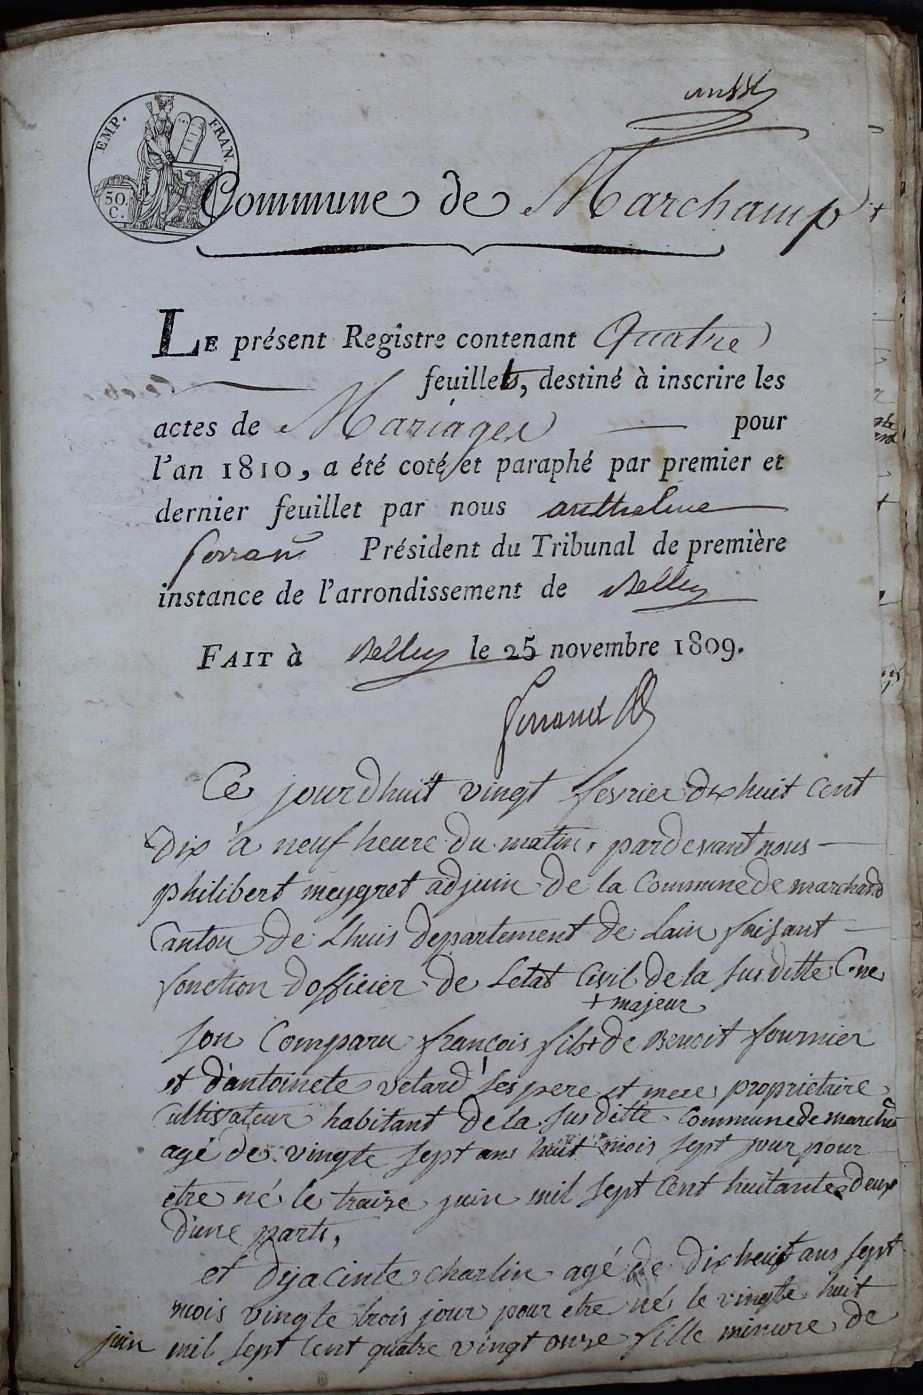 EMP. FRAN.
50.
C.
Commune de Marchamp
LE présent Registre contenant Quatre
feuillets, destiné à inscrire les
actes de Mariages pour
l'an 1810, a été coté et paraphé par premier et
dernier feuillet par nous anthelme
ferrand Président du Tribunal de première
instance de l'arrondissement de Belley
FAIT à Belley le 25 novembre 1809.
ferrand
Ce jourdhuit vingt fevrier dixhuit Cent
Dix à neuf heure du matin, pardevant nous
philibert meygret adjuin de la Commune de marchand
Canton de Lhuis département de Lain faisant
fonction dofficier de Letat Civil de la susditte Cne
+ majeur
son Comparu françois fils + de Benoit fournier
et d'antoinete vetard ses pere et mere propriétaire
cultivateur habitant de la susditte Commune de marchd
agé de vingte sept ans huit mois sept jour pour
etre né le traize juin mil sept Cent huitante deux
d'une parts,
et dyacinte charlin agé de dixheuit ans sept
mois vingte trois jour pour etre né le vingte huit
juin mil sept Cent quatre vingt onze fille mineure de